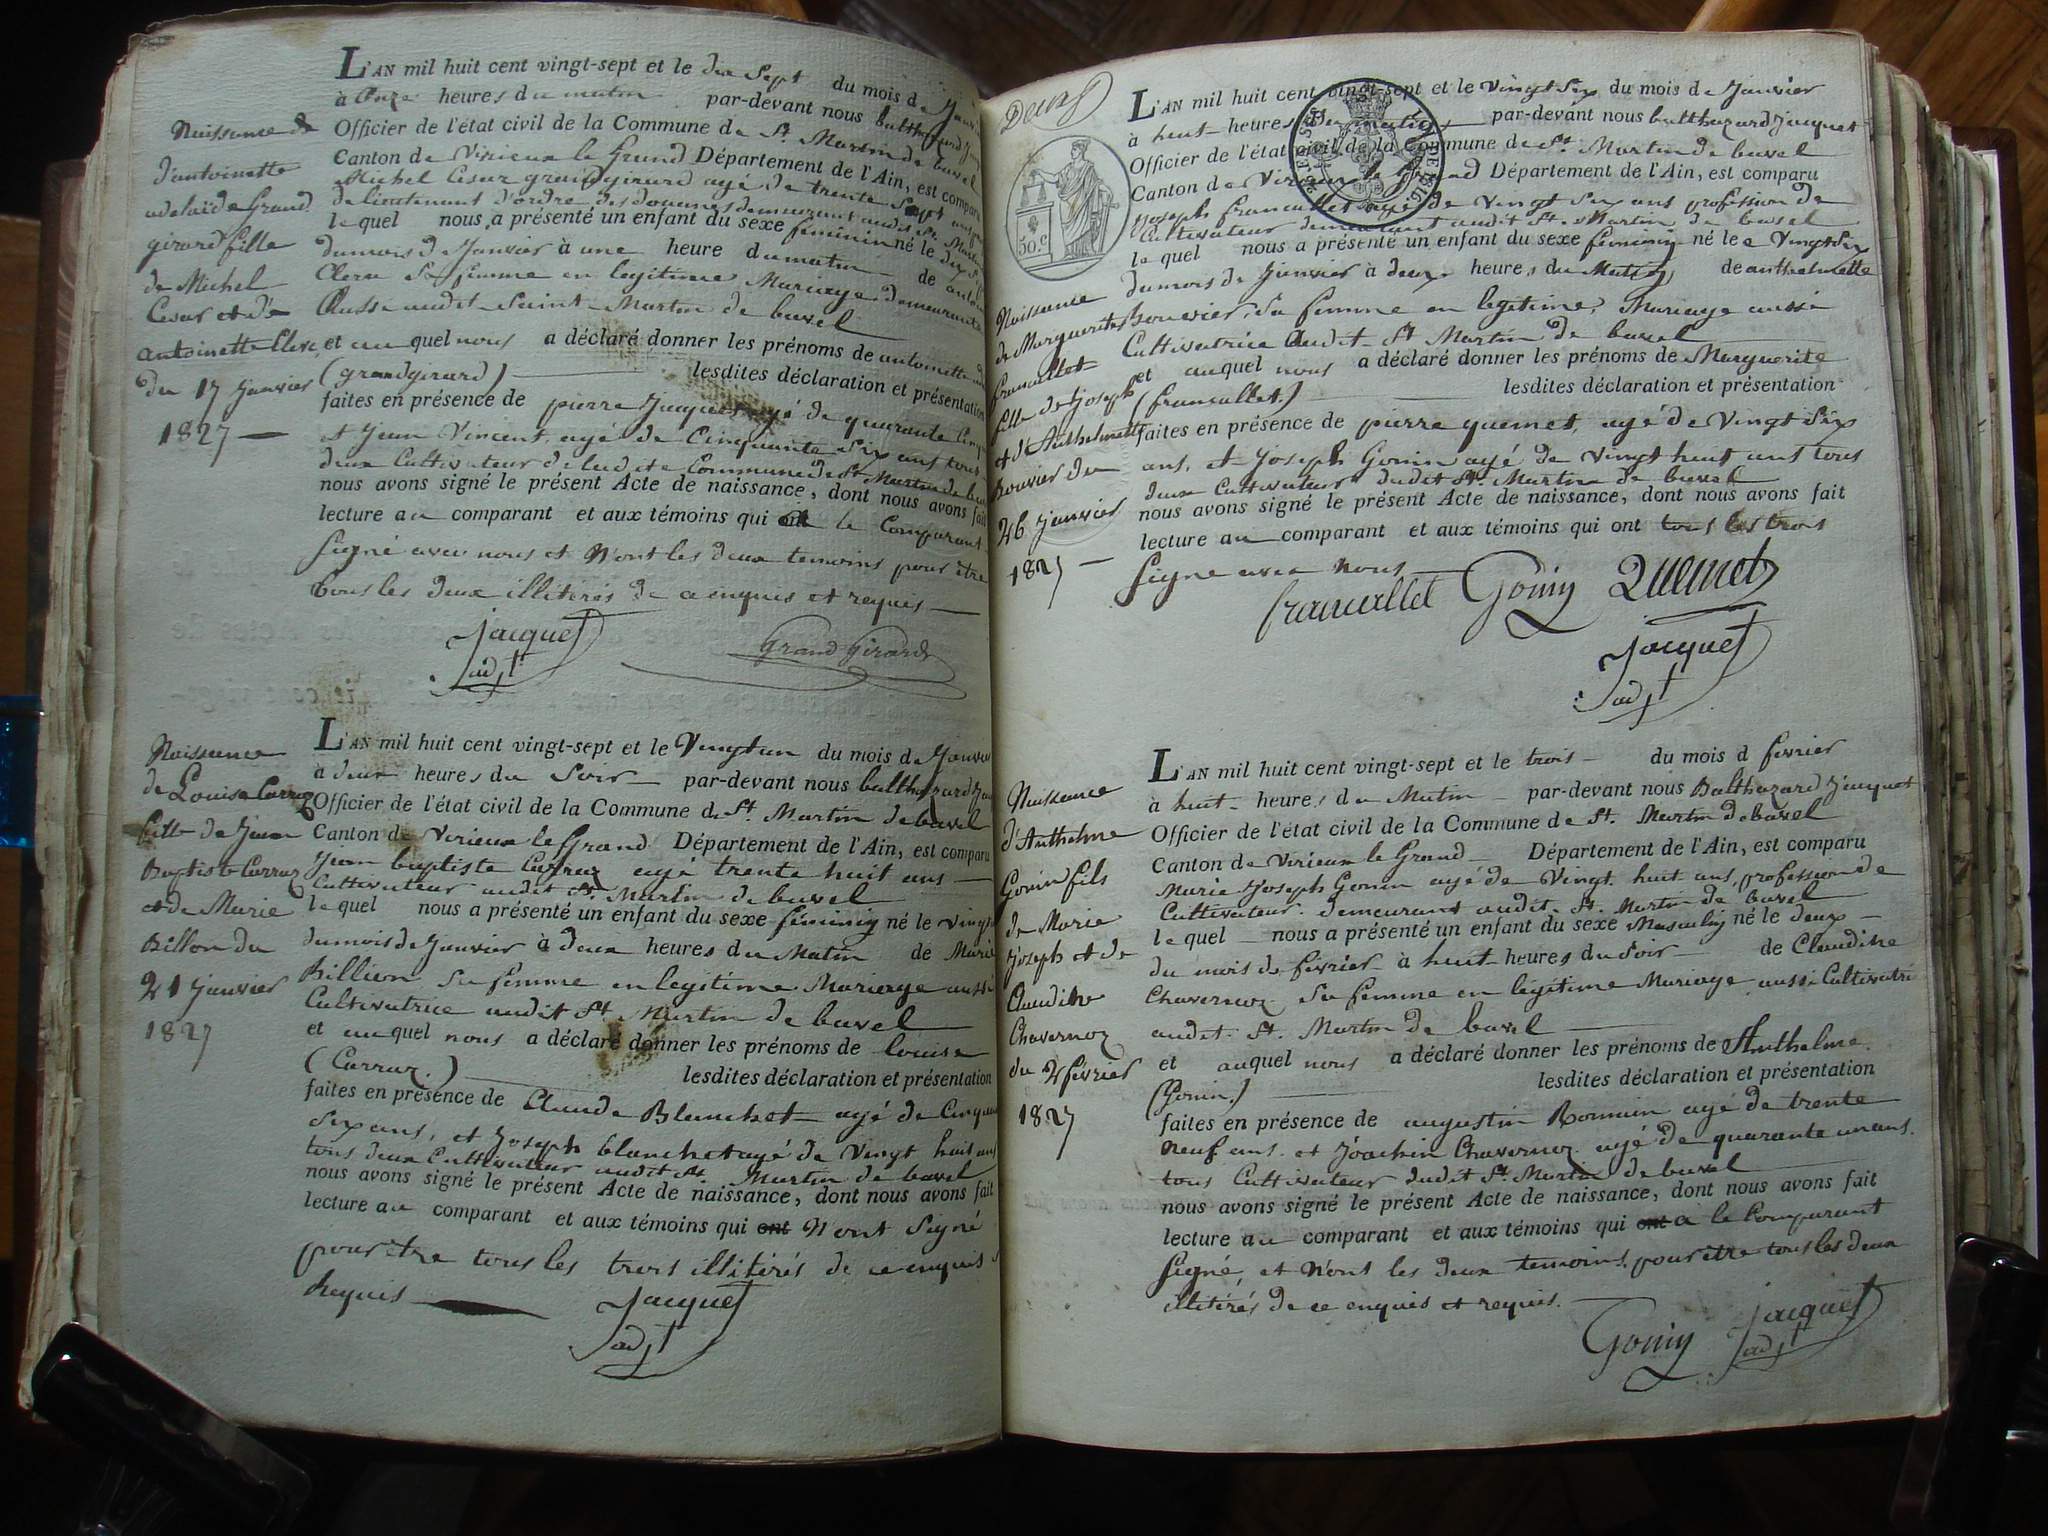 Naissance de
d'antoinette
adelaïde Grand
girard fille
de Michel
Cesar et d'e
antoinette Clerc
du 17 janvier
1827
L'AN mil huit cent vingt-sept et le dix Sept du mois de
à Onze heures du matin par-devant nous
Officier de l'état civil de la Commune de St. Martin de bavel
Canton de Virieux le Grand Département de l'Ain, est comparu
Michel Cesar grandgirard agé de trente Sept
de lieutenant d'ordre des douanes demeurant audit St. Martin
le quel nous a présenté un enfant du sexe féminin né le dix
du mois de Janvier à une heure du matin de
Clerc Sa femme en legitime Mariage demeurante
Aussi audit Saint Martin de bavel
et au quel nous a déclaré donner les prénoms de antoinette
(grandgirard) lesdites déclaration et présentation
faites en présence de pierre Jacquet agé de quarante
et Jean Vincent, agé de Cinquante Six ans tous
deux Cultivateur de ladite Commune de St Martin de
nous avons signé le présent Acte de naissance, dont nous avons fait
lecture au comparant et aux témoins qui le Comparant
Signé avec nous et N'ont les deux temoins pour être
tous les deux illitérés de ce enquis et requis
Jacquet
adjt
Grand Girard
Naissance
de Louise Carraz
fille de Jean
Baptiste Carraz
et de Marie
Billon du
21 janvier
1827
L'AN mil huit cent vingt-sept et le Vingt un du mois de
à deux heures du Soir par-devant nous
Officier de l'état civil de la Commune de St. Martin de bavel
Canton de Virieux le Grand Département de l'Ain, est comparu
Jean baptiste Carraz agé trente huit ans
Cultivateur audit St. Martin de bavel
le quel nous a présenté un enfant du sexe féminin né le
du mois de Janvier à deux heures du Matin de Marie
Billion Sa femme en legitime Mariage aussi
Cultivatrice audit St Martin de bavel
et au quel nous a déclaré donner les prénoms de Louise
(Carraz.) lesdites déclaration et présentation
faites en présence de Claude Blanchet agé de
Six ans, et Joseph blanchet agé de Vingt huit ans
tous deux Cultivateur audit St. Martin de bavel
nous avons signé le présent Acte de naissance, dont nous avons fait
lecture au comparant et aux témoins qui ont N'ont Signé
pour être tous les trois illitérés de ce enquis
Requis
Jacquet
adjt
Deux
30.c
Naissance
de Marguerite
francallet
fille de Joseph
et d'Anthelmette
Bouvier du
26 janvier
1827
L'AN mil huit cent vingt-sept et le Vingt Six du mois de Janvier
à huit heures du matin par-devant nous balthazard Jacquet
Officier de l'état civil de la Commune de St. Martin de bavel
Canton de Virieux le Grand Département de l'Ain, est comparu
Joseph francallet agé de Vingt Six ans profession de
Cultivateur demeurant audit St. Martin de bavel
le quel nous a présenté un enfant du sexe féminin né le Vingt Six
du mois de Janvier à deux heures du Matin de anthelmette
Bouvier, Sa femme en legitime, Mariage aussi
Cultivatrice Audit St Martin de bavel
et auquel nous a déclaré donner les prénoms de Marguerite
(francallet.) lesdites déclaration et présentation
faites en présence de pierre quemet, agé de Vingt Six
ans, et Joseph Gonin agé de Vingt huit ans tous
deux Cultivateur dudit St. Martin de bavel
nous avons signé le présent Acte de naissance, dont nous avons fait
lecture au comparant et aux témoins qui ont tous les trois
Signé avec nous
francallet Gonin Quemet
Jacquet
adjt
Naissance
d'Anthelme
Gonin fils
de Marie
Joseph et de
Claudine
Chavernoz
du 2 février
1827
L'AN mil huit cent vingt-sept et le trois du mois d février
à huit heures du Matin par-devant nous Balthazard Jacquet
Officier de l'état civil de la Commune de St. Martin de bavel
Canton de Virieux le Grand Département de l'Ain, est comparu
Marie Joseph Gonin agé de Vingt huit ans, profession de
Cultivateur demeurant audit St. Martin de bavel
le quel nous a présenté un enfant du sexe Masculin né le deux
du mois de février à huit heures du Soir de Claudine
Chavernoz Sa femme en légitime Mariage aussi
audit St. Martin de bavel
et auquel nous a déclaré donner les prénoms de Anthelme
(Gonin.) lesdites déclaration et présentation
faites en présence de augustin Romain agé de trente
neuf ans. et Joachin Chavernoz agé de quarante un ans.
tous Cultivateur dudit St. Martin de bavel
nous avons signé le présent Acte de naissance, dont nous avons fait
lecture au comparant et aux témoins qui ont a le Comparant
Signé et N'ont les deux temoins, pour être tous les deux
illitérés de ce enquis et requis.
Gonin
Jacquet
adjt